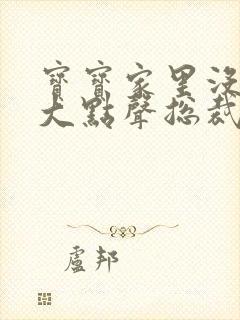 寶寶家里沒
大點聲總裁
盧邦